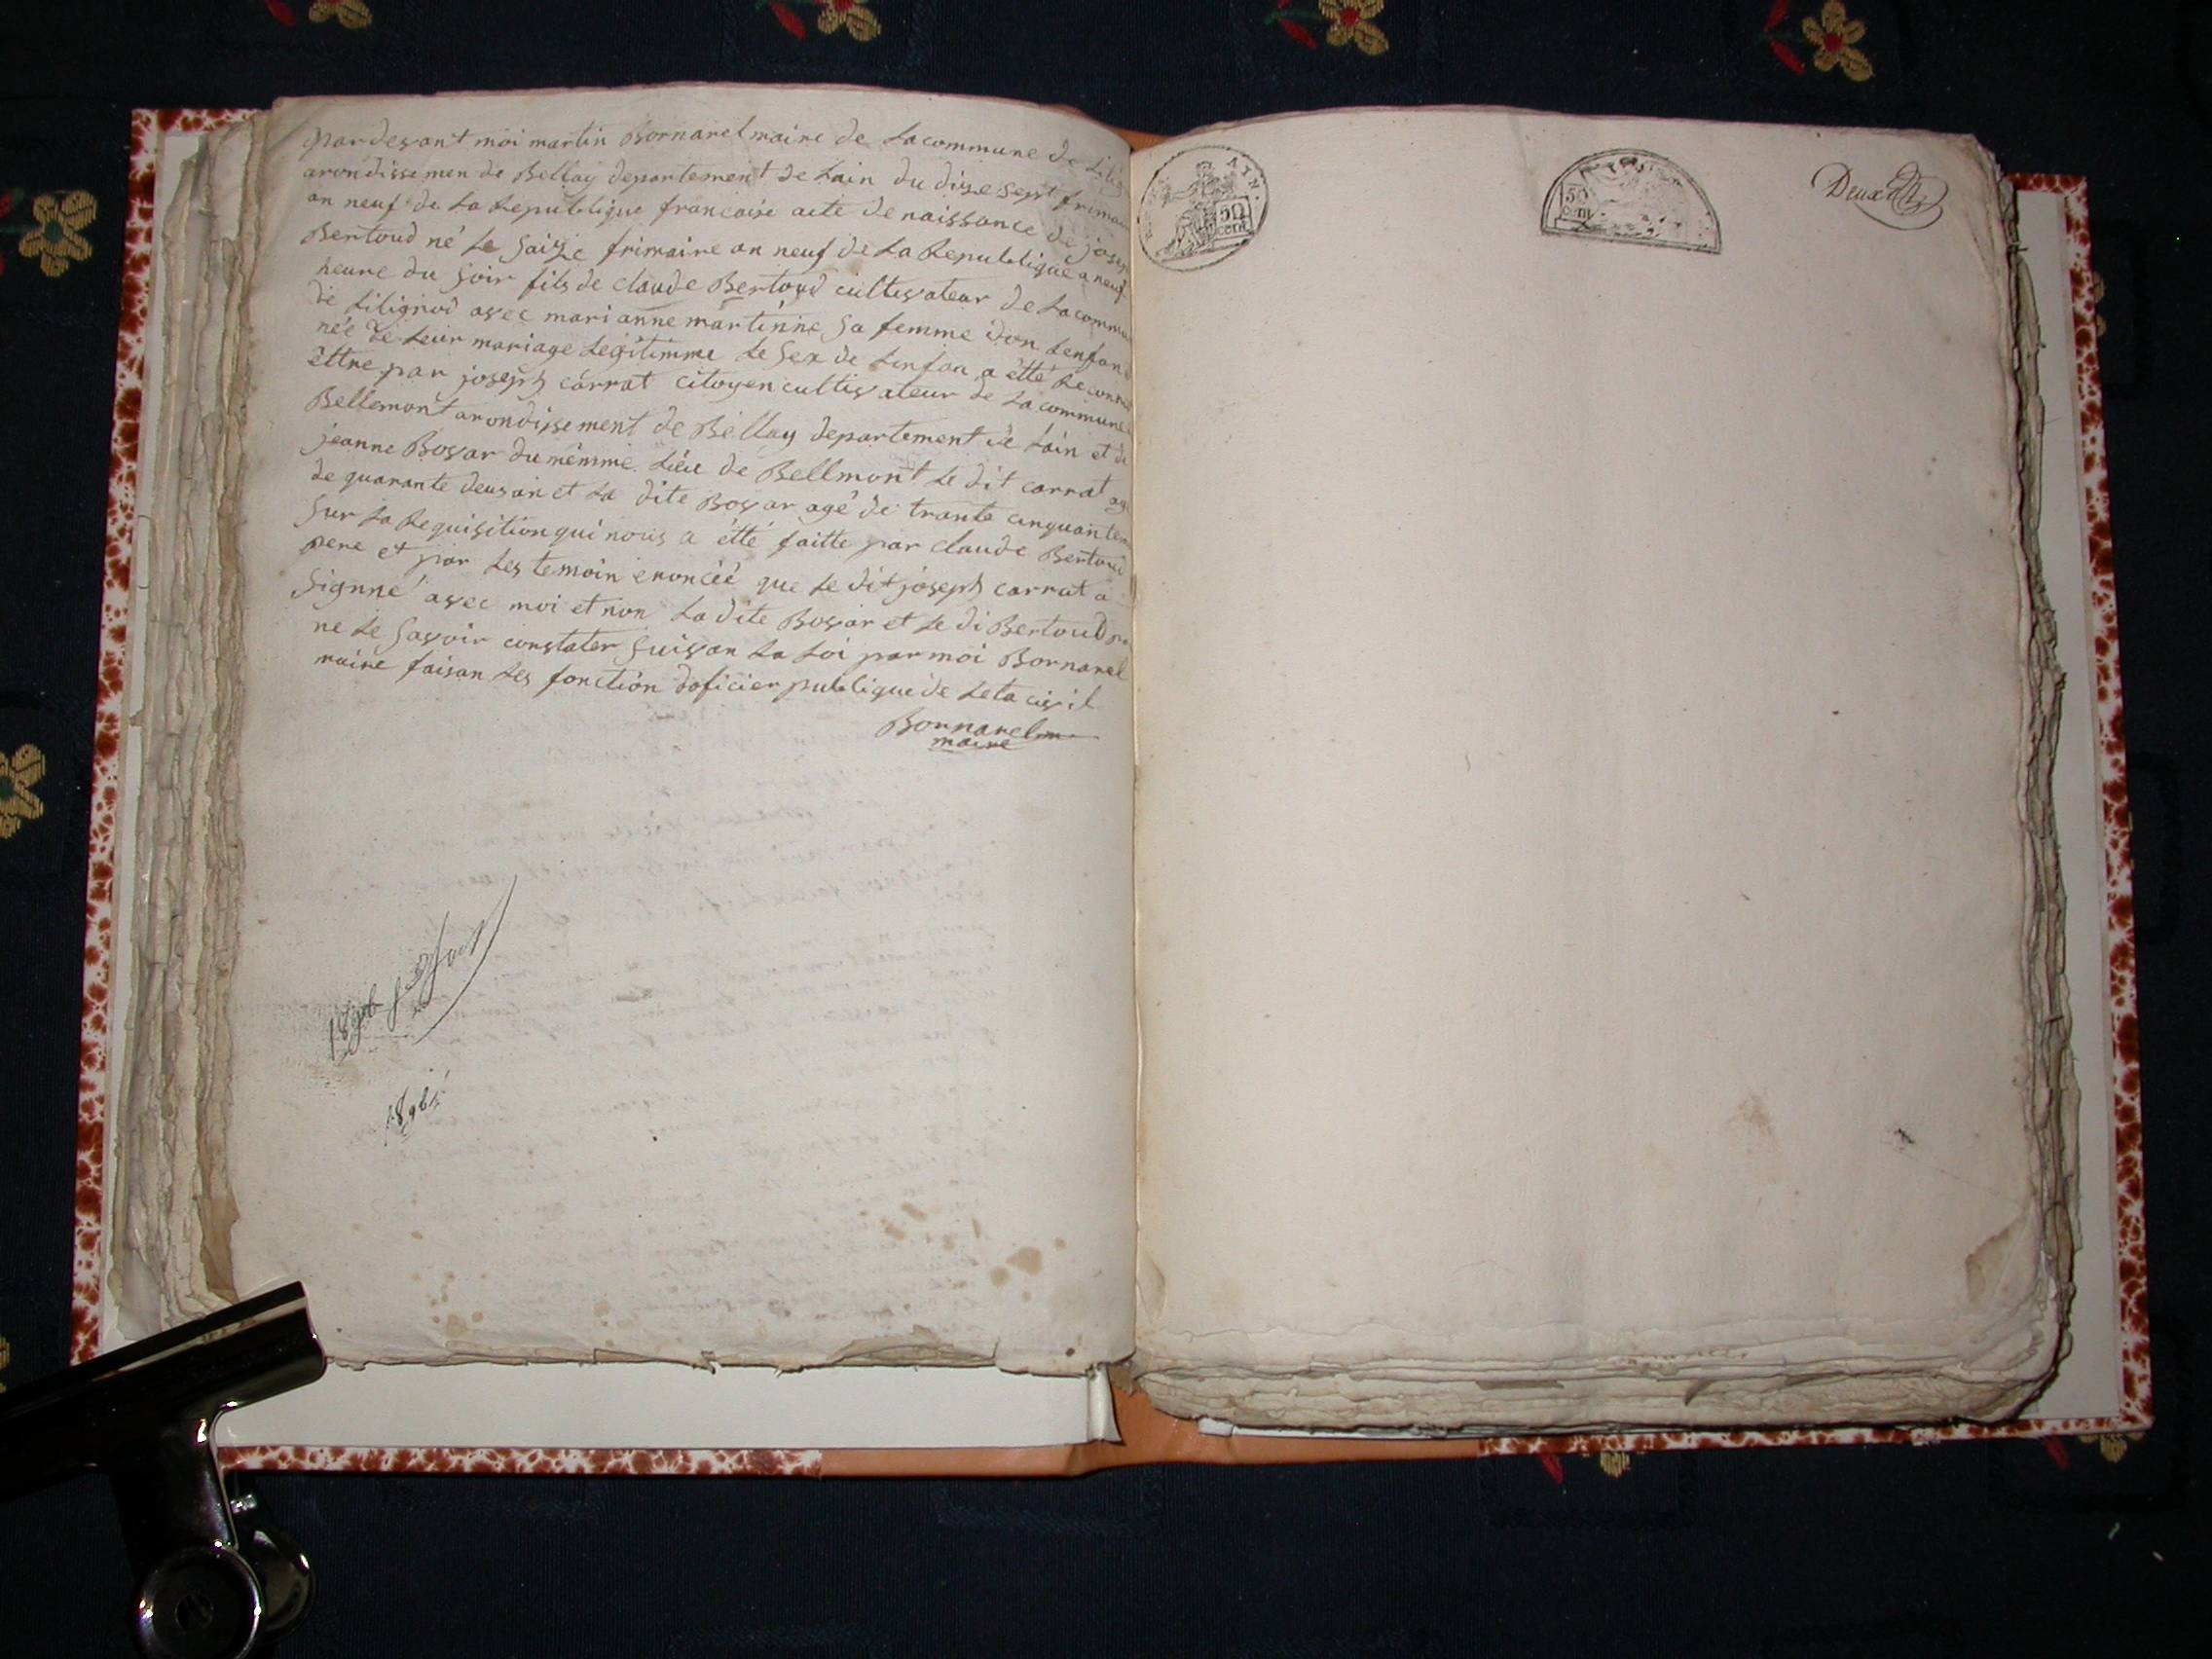 pardevant moi martin Bornarel maire de La commune de Lilig
arondissemen de Bellay departement de Lain du dixe sept frimai
an neuf de La Republique francaise acte de naissance de josep
Bertoud né Le Saize frimaire an neuf de La Republique a neuf
heure du Soir fils de claude Bertoud cultivateur de La commu
de Lilignod avec marianne martinne Sa femme don Lenfan
née de Leur mariage Legitimme Le Sex de Lenfan a étté Reconnu
Ettre par joseph carrat citoyen cultivateur de La commune
Bellemont arondissement de Bellay departement de Lain et de
jeanne Bovar du mêmme Liéu de Bellmont Le dit carrat agé
de quarante deus an et La dite Bovar agé de trante cinq
Sur La Requisition qui nous a étté faitte par claude Bertoud
pere et par Les temoin enoncéé que Le dit joseph carrat a
Signné avec moi et non La dite Bovar et Le di Bertoud
ne Le Savoir constater Suivan La Loi par moi Bornarel
maire faisan Les fonction doficier publique de Leta civil
Bornarel
maire
AIN
50
cent
50
cent
Deux